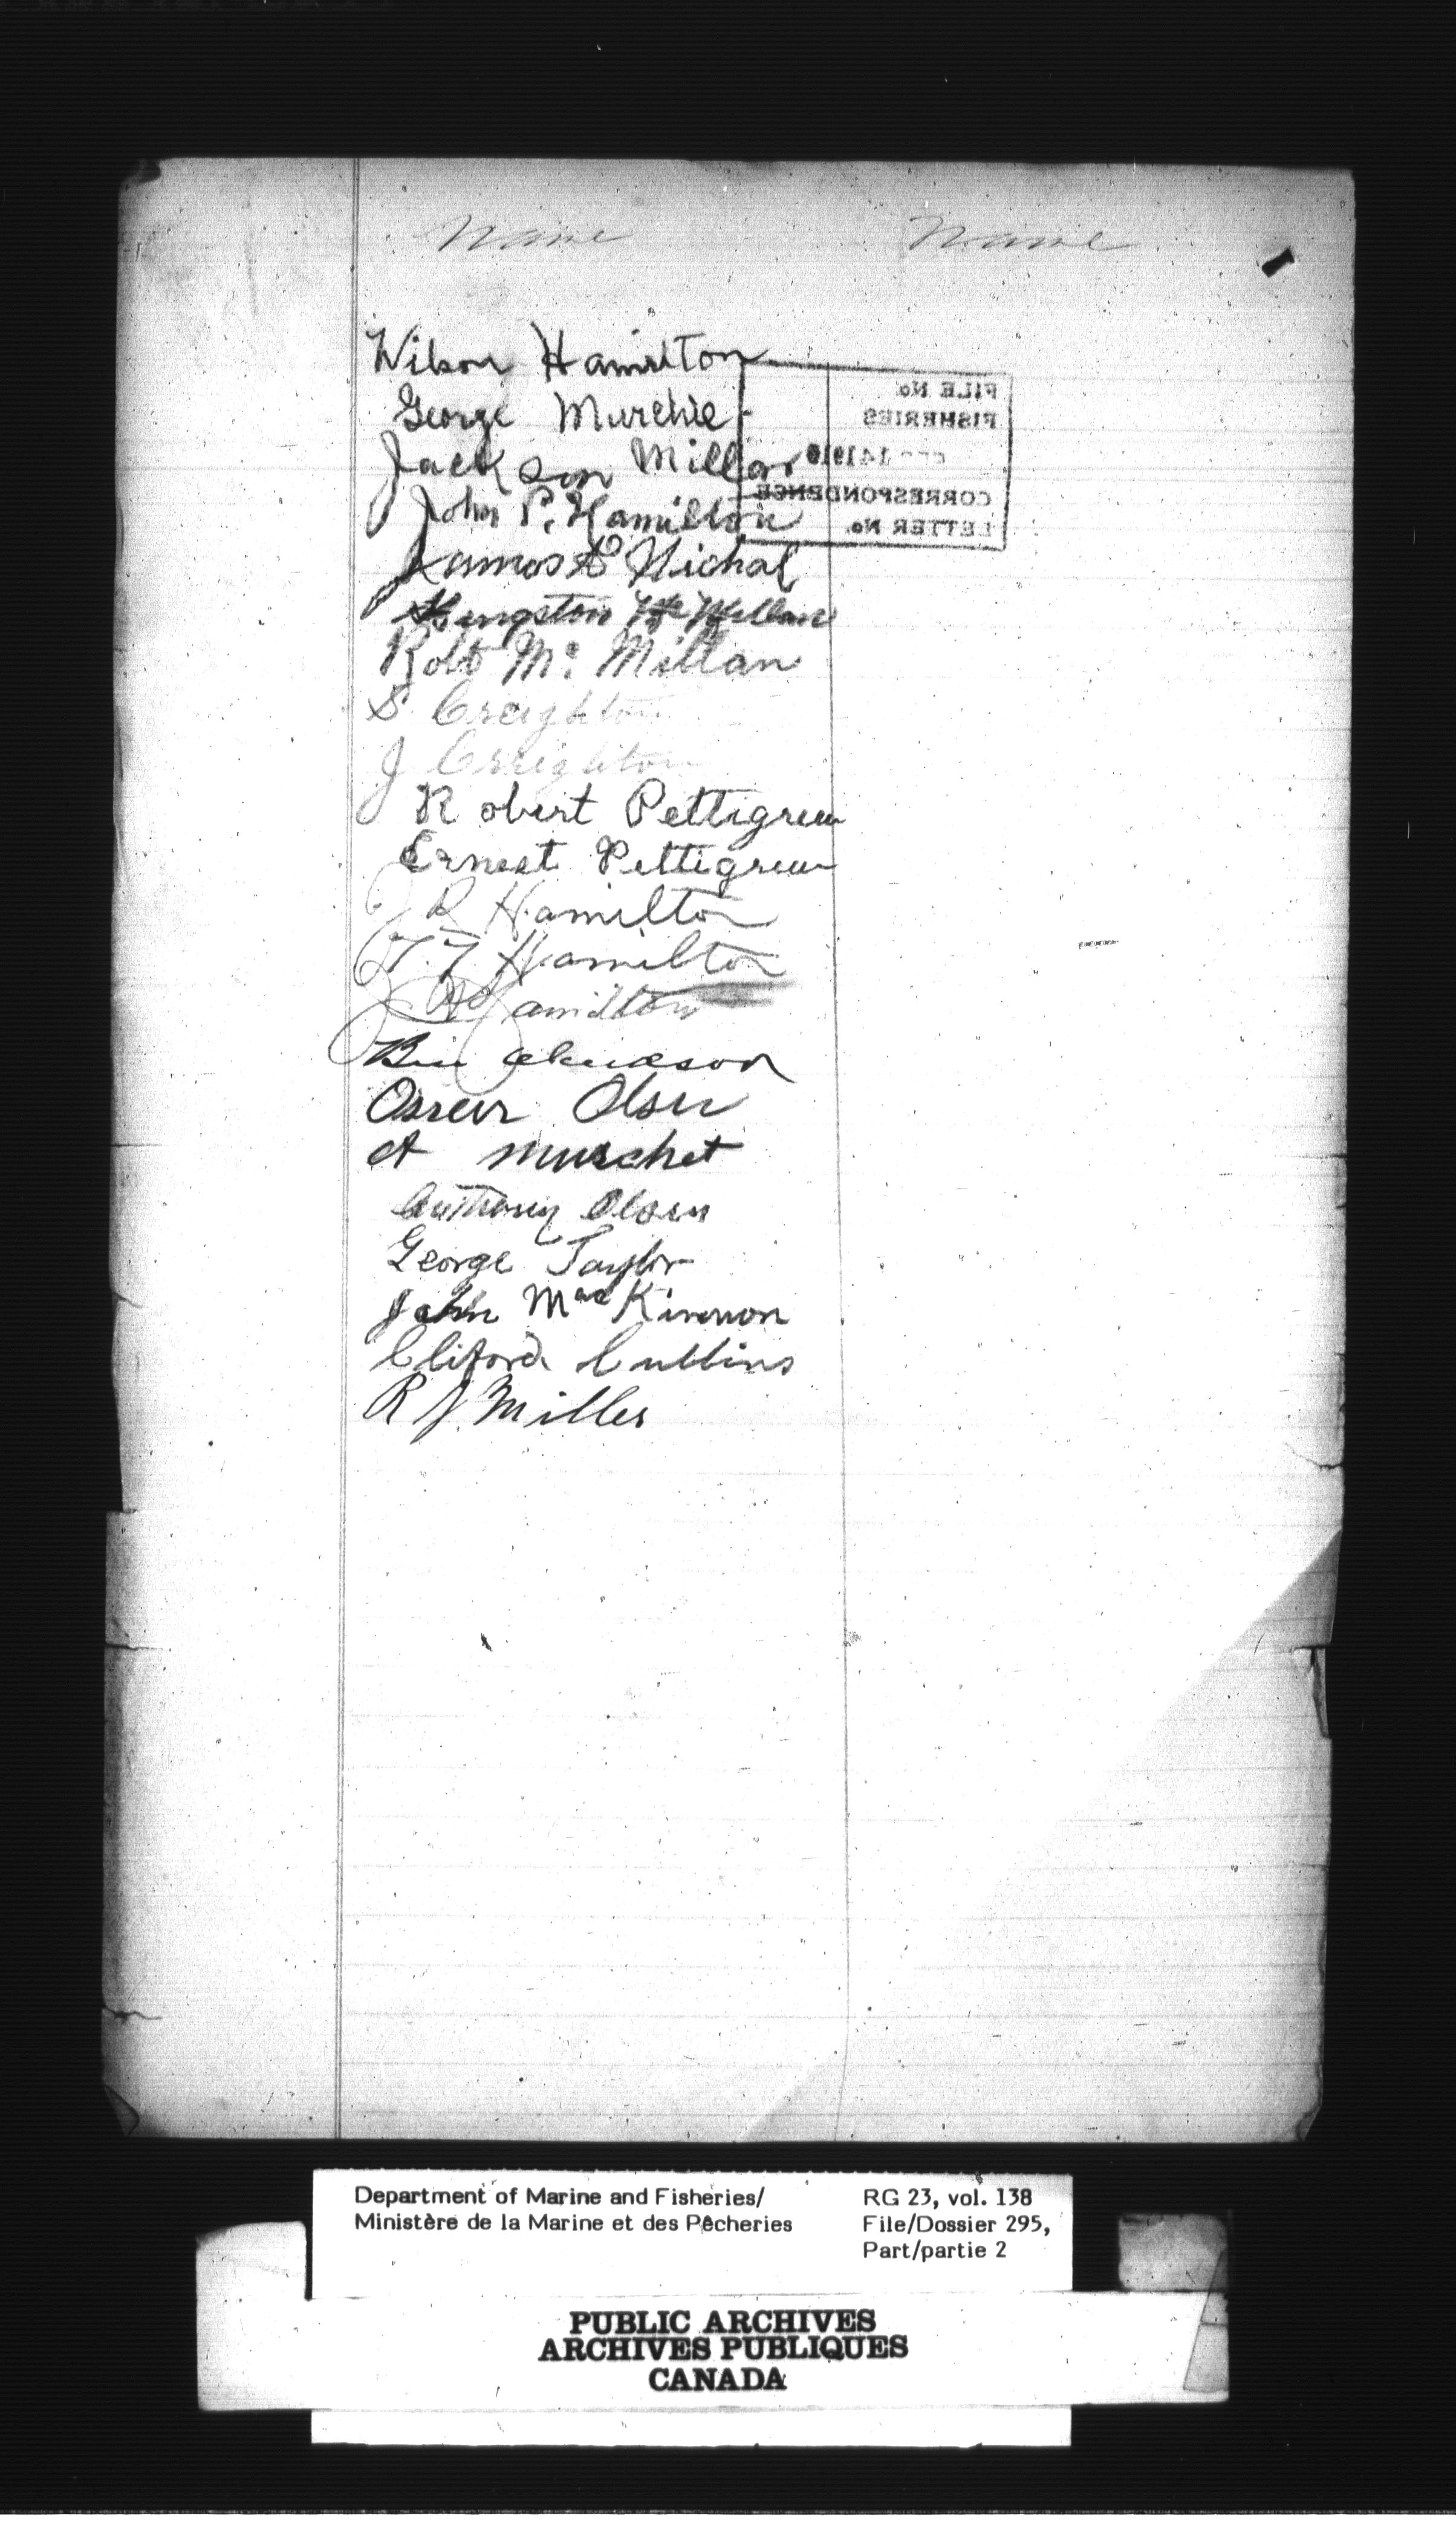 Name Name
Wilson Hamilton
George Murchie
Jackson Millar
FILE No.
FISHERIES
14 1910
CORRESPONDENCE
LETTER No.
John P. Hamilton
James A Nichol
Kingston McMillan
Robt Mc Millan
S Creighton
J Creighton
Robert Pettigrew
Ernest Pettigrew
J R Hamilton
Hamilton
Hamilton
Ben
Olsen
A Murchet
Anthony Olsen
George Taylor
John MacKinnon
Cliford Cullins
R J. Miller
Department of Marine and Fisheries/
Ministère de la Marine et des Pêcheries
RG 23, vol. 138
File/Dossier 295,
Part/partie 2
PUBLIC ARCHIVES
ARCHIVES PUBLIQUES
CANADA